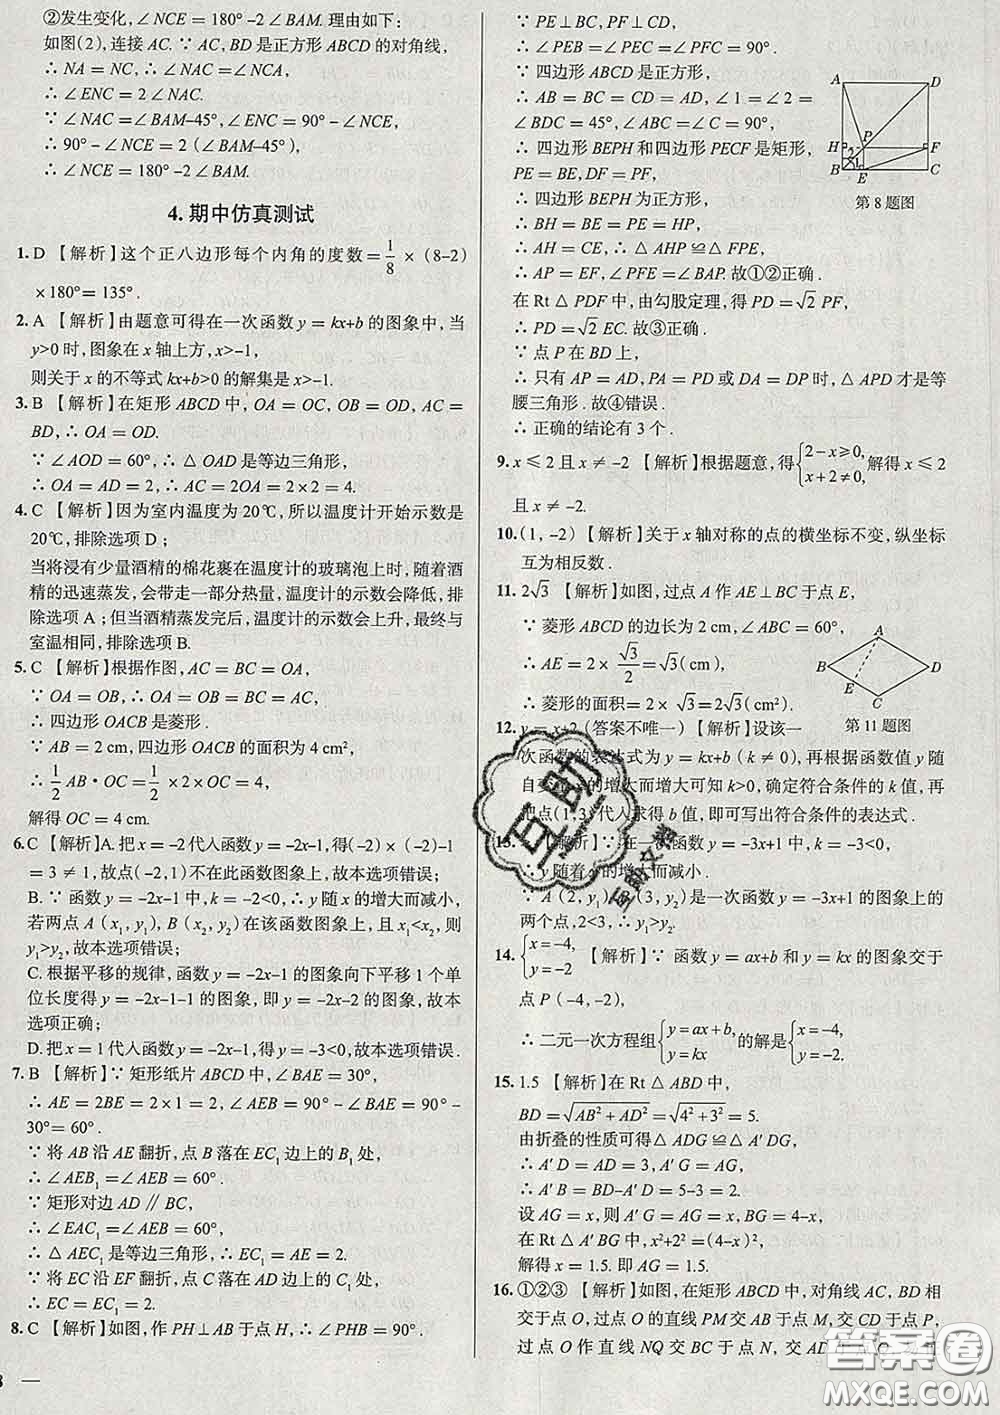 ②发生变化,∠NCE=180°-2∠BAM. 理由如下:
如图(2),连接 AC. ∵ AC,BD 是正方形 ABCD 的对角线,
∴ NA=NC,∴ ∠NAC=∠NCA,
∴ ∠ENC=2∠NAC.
∵ ∠NAC=∠BAM-45°,∠ENC=90°-∠NCE,
∴ 90°-∠NCE=2(∠BAM-45°),
∴ ∠NCE=180°-2∠BAM.
4. 期中仿真测试
1. D 【解析】这个正八边形每个内角的度数=1/8×(8-2)
×180°=135°.
2. A 【解析】由题意可得在一次函数 y=kx+b 的图象中,当
y>0 时,图象在 x 轴上方,x>-1,
则关于 x 的不等式 kx+b>0 的解集是 x>-1.
3. B 【解析】在矩形 ABCD 中,OA=OC,OB=OD,AC=
BD,∴ OA=OD.
∵ ∠AOD=60°,∴ △OAD 是等边三角形,
∴ OA=AD=2,∴ AC=2OA=2×2=4.
4. C 【解析】因为室内温度为20℃,所以温度计开始示数是
20℃,排除选项 D;
当将浸有少量酒精的棉花裹在温度计的玻璃泡上时,随着酒
精的迅速蒸发,会带走一部分热量,温度计的示数会降低,排
除选项 A;但当酒精蒸发完后,温度计的示数会上升,最终与
室温相同,排除选项 B.
5. C 【解析】根据作图,AC=BC=OA,
∵ OA=OB,∴ OA=OB=BC=AC,
∴ 四边形 OACB 是菱形.
∵ AB=2 cm,四边形 OACB 的面积为 4 cm²,
∴ 1/2 AB·OC=1/2×2×OC=4,
解得 OC=4 cm.
6. C 【解析】A. 把 x=-2 代入函数 y=-2x-1,得(-2)×(-2)-1
=3≠1,故点(-2,1)不在此函数图象上,故本选项错误;
B. ∵ 函数 y=-2x-1 中,k=-2<0,∴ y 随 x 的增大而减小,
若两点 A(x₁,y₁),B(x₂,y₂)在该函数图象上,且 x₁<x₂,则
y₁>y₂,故本选项错误;
C. 根据平移的规律,函数 y=-2x-1 的图象向下平移1个单
位长度得 y=-2x-1-1 的图象,即 y=-2x-2 的图象,故本
选项正确;
D. 把 x=1 代入函数 y=-2x-1,得 y=-3<0,故本选项错误.
7. B 【解析】∵ 矩形纸片 ABCD 中,∠BAE=30°,
∴ AE=2BE=2×1=2,∠AEB=90°-∠BAE=90°-
30°=60°.
∵ 将 AB 沿 AE 翻折,点 B 落在 EC₁ 边上的 B₁ 处,
∴ ∠AEB₁=∠AEB=60°.
∵ 矩形对边 AD∥BC,
∴ ∠EAC₁=∠AEB=60°,
∴ △AEC₁ 是等边三角形,∴ EC₁=AE=2.
∵ 将 EC 沿 EF 翻折,点 C 落在 AD 边上的 C₁ 处,
∴ EC=EC₁=2.
8. C 【解析】如图,作 PH⊥AB 于点 H,∴ ∠PHB=90°.
∵ PE⊥BC,PF⊥CD,
∴ ∠PEB=∠PEC=∠PFC=90°.
∵ 四边形 ABCD 是正方形,
∴ AB=BC=CD=AD,∠1=∠2=
∠BDC=45°,∠ABC=∠C=90°,
∴ 四边形 BEPH 和四边形 PECF 是矩形,
PE=BE,DF=PF,
∴ 四边形 BEPH 为正方形,
∴ BH=BE=PE=HP,
∴ AH=CE,∴ △AHP≌△FPE,
∴ AP=EF,∠PFE=∠BAP. 故①②正确.
在 Rt△PDF 中,由勾股定理,得 PD=√2 PF,
∴ PD=√2 EC. 故③正确.
∵ 点 P 在 BD 上,
∴ 只有 AP=AD,PA=PD 或 DA=DP 时,△APD 才是等
腰三角形. 故④错误.
∴ 正确的结论有3个.
A D
H 2 P F
B 1 E C
第8题图
9. x≤2 且 x≠-2 【解析】根据题意,得{2-x≥0, x+2≠0,解得 x≤2
且 x≠-2.
10. (1,-2) 【解析】关于 x 轴对称的点的横坐标不变,纵坐标
互为相反数.
11. 2√3 【解析】如图,过点 A 作 AE⊥BC 于点 E,
∵ 菱形 ABCD 的边长为 2 cm,∠ABC=60°,
∴ AE=2×√3/2=√3(cm),
∴ 菱形的面积=2×√3=2√3(cm²).
A
B D
E
C
第11题图
12. y=x+2(答案不唯一) 【解析】设该一
次函数的表达式为 y=kx+b(k≠0),再根据函数值 y 随
自变量 x 的增大而增大可知 k>0,确定符合条件的 k 值,
再把点(1,3)代入求得 b 值,即可写出符合条件的表达式.
13. 【解析】∵ 在一次函数 y=-3x+1 中,k=-3<0,
∴ y 随着 x 的增大而减小.
∵ A(2,y₁), (3,y₂)是一次函数 y=-3x+1 的图象上的
两个点,2<3,∴ y₁>y₂.
14. {x=-4, y=-2 【解析】∵ 函数 y=ax+b 和 y=kx 的图象交于
点 P(-4,-2),
∴ 二元一次方程组{y=ax+b, y=kx 的解是{x=-4, y=-2.
15. 1.5 【解析】在 Rt△ABD 中,
BD=√(AB²+AD²)=√(4²+3²)=5.
由折叠的性质可得△ADG≌△A′DG,
∴ A′D=AD=3,A′G=AG,
∴ A′B=BD-A′D=5-3=2.
设 AG=x,则 A′G=AG=x,BG=4-x,
在 Rt△A′BG 中,x²+2²=(4-x)²,
解得 x=1.5. 即 AG=1.5.
16. ①②③ 【解析】如图,在矩形 ABCD 中,对角线 AC,BD 相
交于点 O,过点 O 的直线 PM 交 AB 于点 M,交 CD 于点 P,
过点 O 作直线 NQ 交 BC 于点 N,交 AD
互助
互助文档
答案圈
MXQE.COM